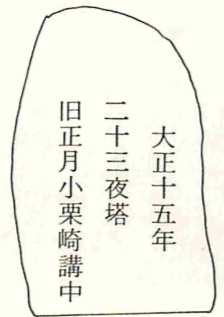 大正十五年
二十三夜塔
旧正月小栗崎講中